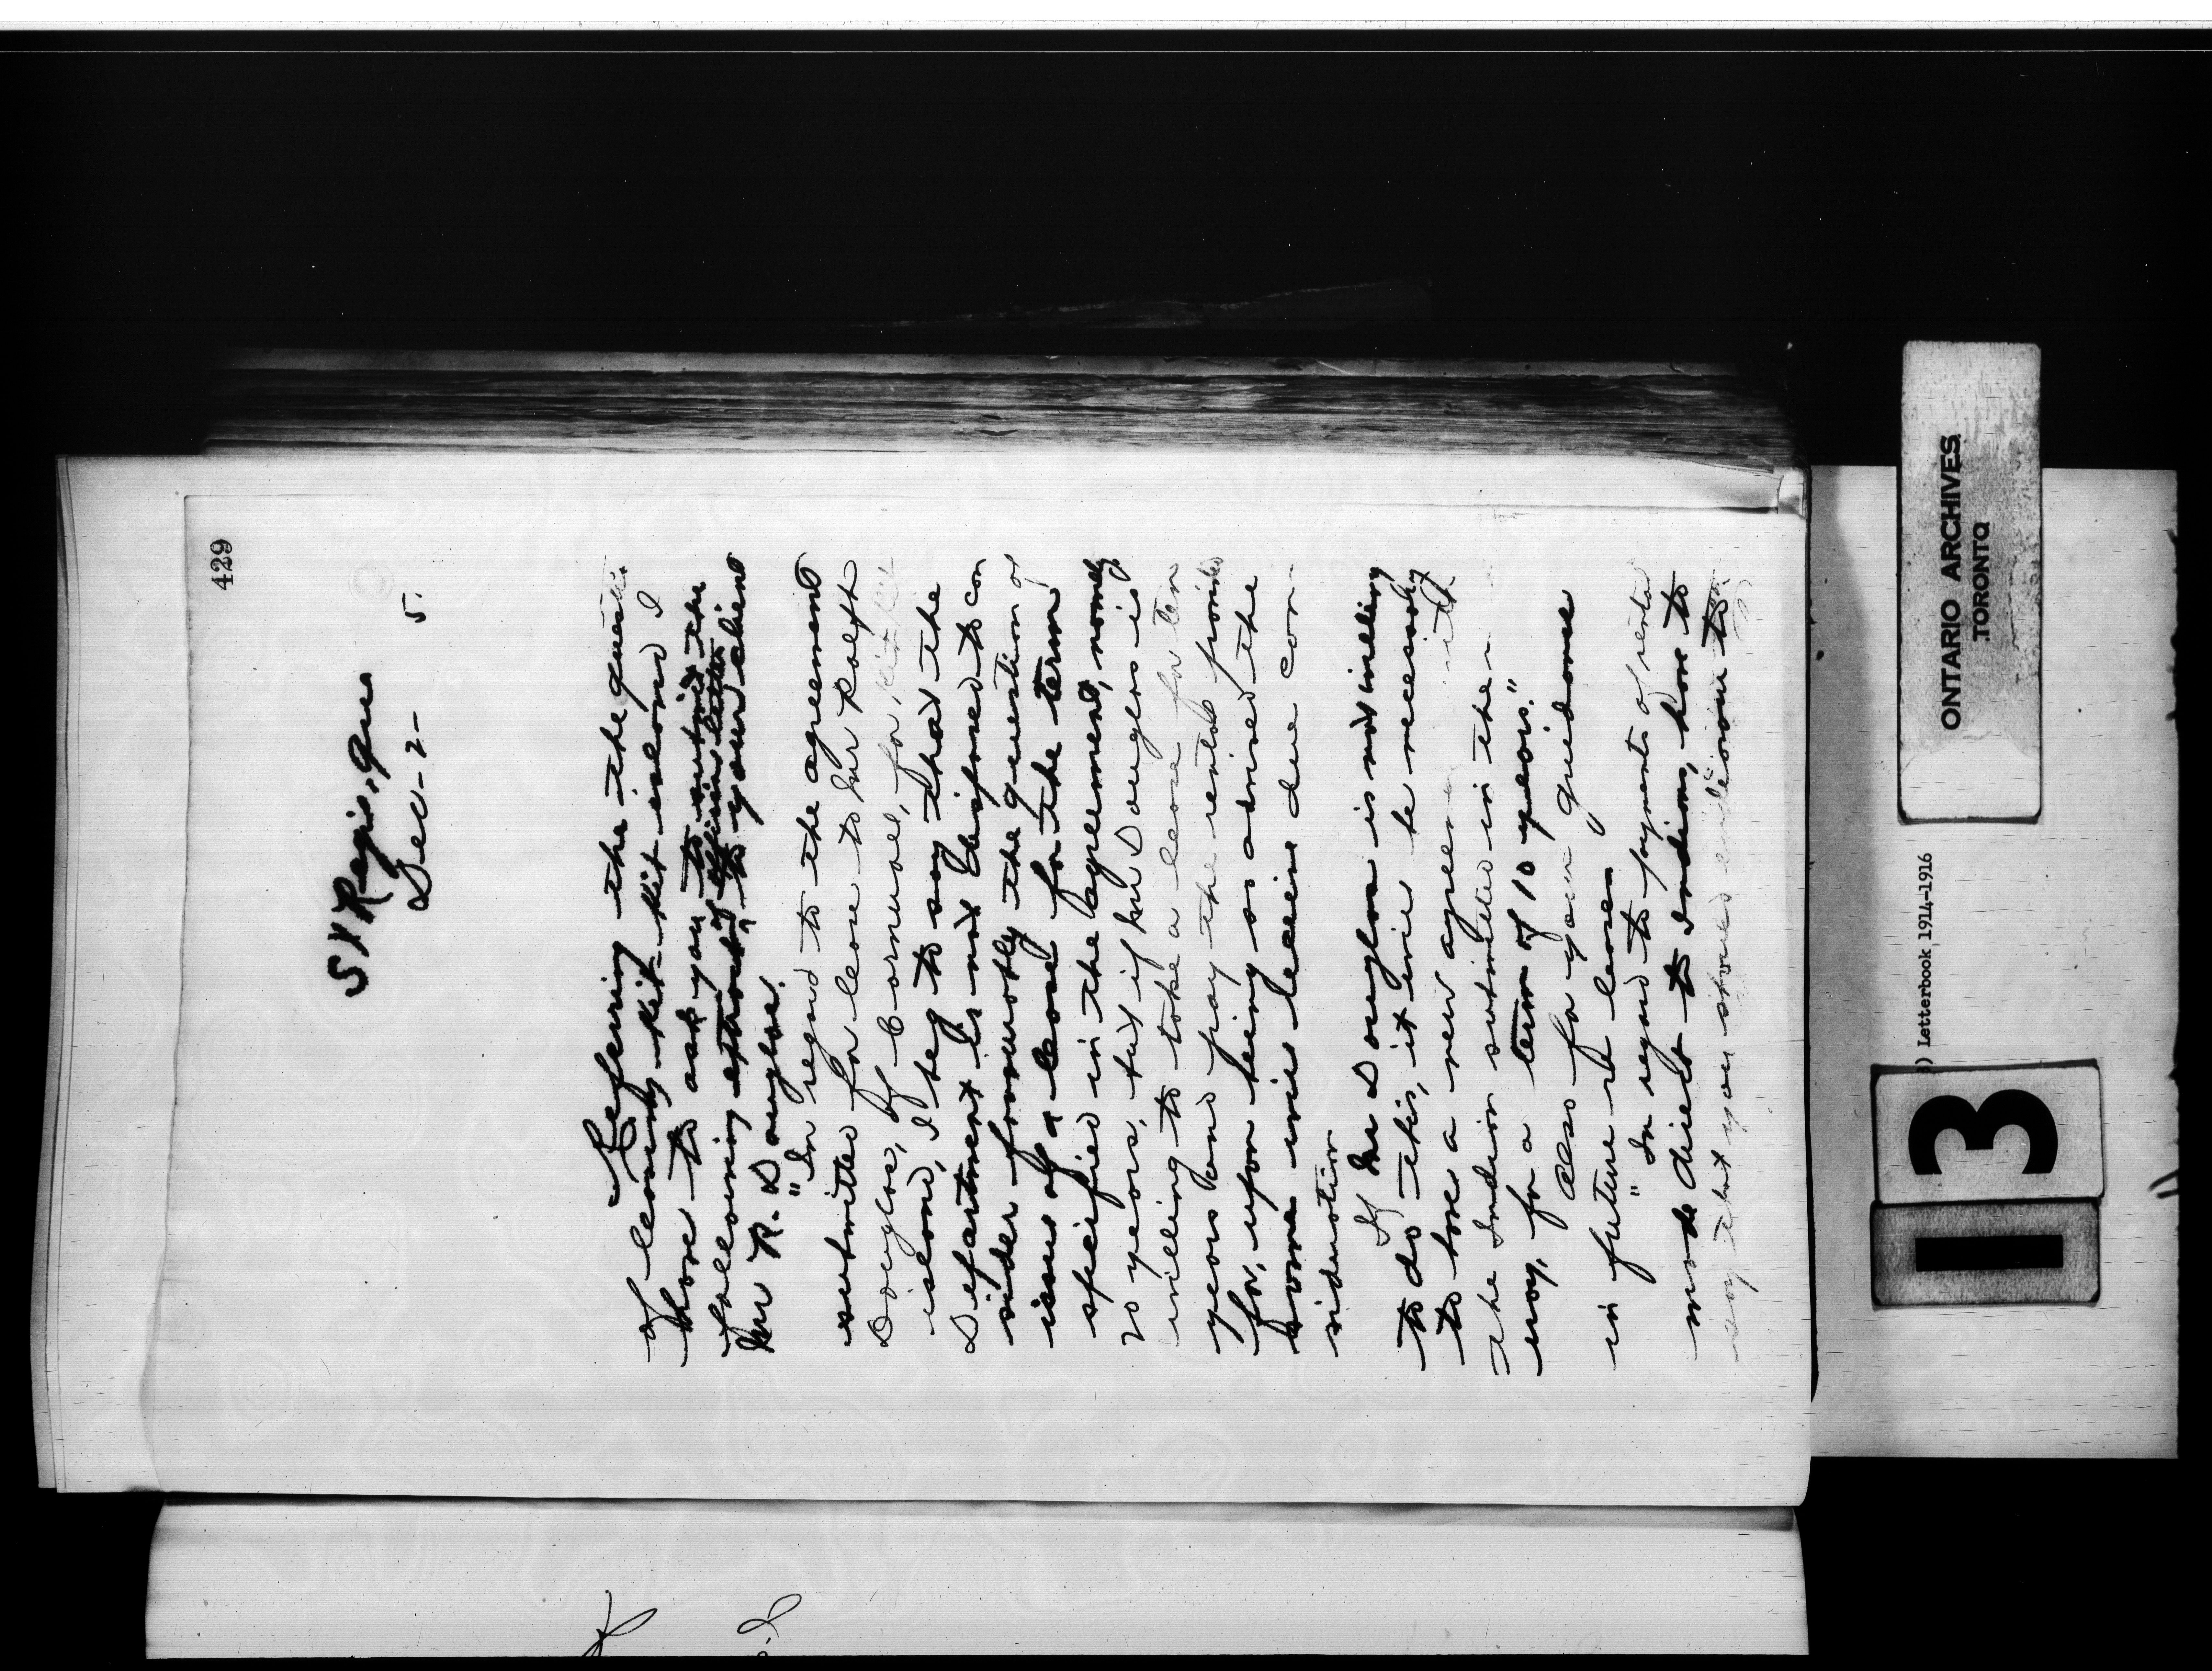 429
St Regis, Que
Dec - 2 - 5.
Referring the the question
of leasing Kit-Kit island I
have to ask you to submit the
following extract of official letter to your client
Mr R. Douglas.
"In regard to the agreement
submitted for lease to Mr Rolft
Douglas, of Cornwall, for, Kit Kit
island, I beg to say that the
Department is not disposed to con
sider favourably the question of
issue of a lease for the term
specified in the agreement, namely
20 years, but if Mr Douglas is
willing to take a lease for ten
years and pay the rental provided
for, upon being so advised the
same will receive due con-
sideration
If Mr Douglas is not willing
to do this, it will be necessary
to have a new agreement with
the Indian submitted in the
way, for a term of 10 years."
Also for your guidance
in future re leases
"In regard to payments of rental
made direct to Indians, have to
say that you should endeavour to
ONTARIO ARCHIVES
TORONTO
) Letterbook 1914-1916
13